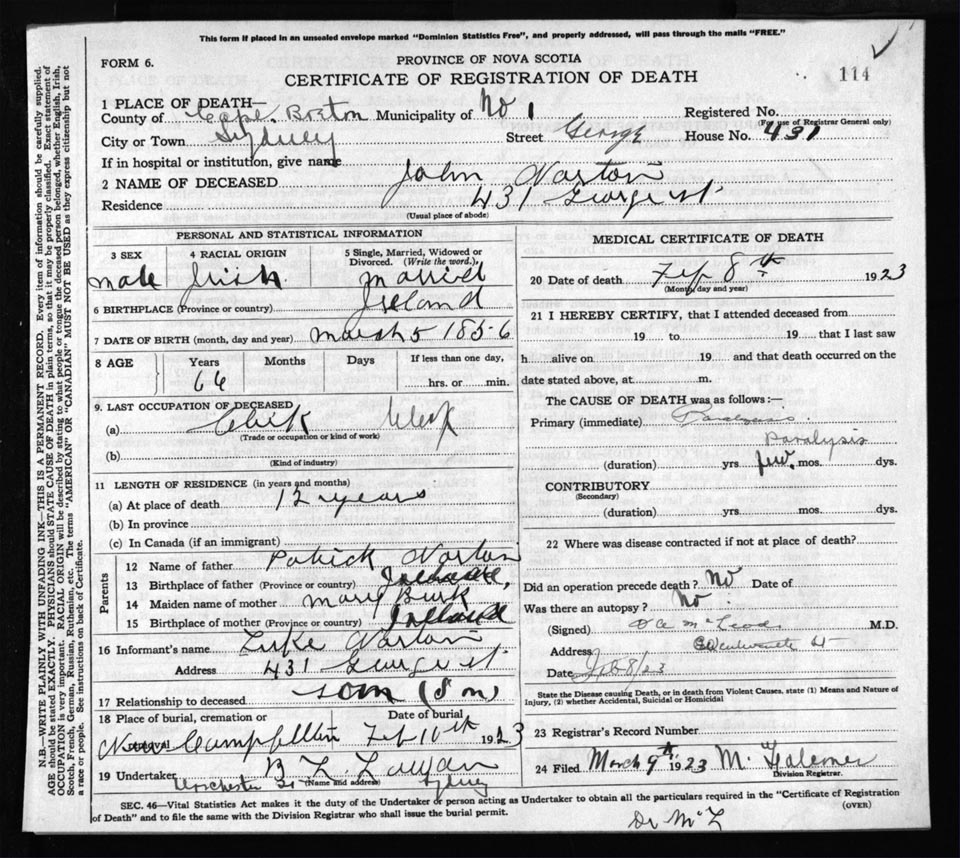 This form if placed in an unsealed envelope marked "Dominion Statistics Free", and properly addressed, will pass through the mails "FREE."
FORM 6.
PROVINCE OF NOVA SCOTIA
CERTIFICATE OF REGISTRATION OF DEATH
114
1 PLACE OF DEATH—
County of Cape Breton Municipality of No 1 Registered No.
(For use of Registrar General only)
City or Town Sydney Street George House No. 431
If in hospital or institution, give name
2 NAME OF DECEASED John Norton
Residence 431 George st
(Usual place of abode)
PERSONAL AND STATISTICAL INFORMATION
3 SEX 4 RACIAL ORIGIN 5 Single, Married, Widowed or Divorced. (Write the word.)
male Irish married
6 BIRTHPLACE (Province or country) Ireland
7 DATE OF BIRTH (month, day and year) March 5 1856
8 AGE Years Months Days If less than one day,
66 hrs. or min.
9. LAST OCCUPATION OF DECEASED
(a) Clerk Clerk
(Trade or occupation or kind of work)
(b)
(Kind of industry)
11 LENGTH OF RESIDENCE (in years and months)
(a) At place of death 12 years
(b) In province
(c) In Canada (if an immigrant)
Parents
12 Name of father Patrick Norton
13 Birthplace of father (Province or country) Ireland
14 Maiden name of mother Mary Burk
15 Birthplace of mother (Province or country) Ireland
16 Informant's name Luke Norton
Address 431 George st.
17 Relationship to deceased son (Son)
18 Place of burial, cremation or removal Date of burial
Feb 10th 1923
19 Undertaker
(Name and address)
Dorchester St Sydney
MEDICAL CERTIFICATE OF DEATH
20 Date of death Feb 8th 1923
(Month, day and year)
21 I HEREBY CERTIFY, that I attended deceased from
19 to 19 that I last saw
h alive on 19 and that death occurred on the
date stated above, at m.
The CAUSE OF DEATH was as follows:—
Primary (immediate) Paralysis
Paralysis
(duration) yrs few mos. dys.
CONTRIBUTORY
(Secondary)
(duration) yrs. mos. dys.
22 Where was disease contracted if not at place of death?
Did an operation precede death? No Date of
Was there an autopsy? No
(Signed) McLeod M.D.
Address
Date Feb 8/23
State the Disease causing Death, or in death from Violent Causes, state (1) Means and Nature of
Injury, (2) whether Accidental, Suicidal or Homicidal
23 Registrar's Record Number
24 Filed March 9th 1923 M.
Division Registrar.
SEC. 46—Vital Statistics Act makes it the duty of the Undertaker or person acting as Undertaker to obtain all the particulars required in the "Certificate of Registration
of Death" and to file the same with the Division Registrar who shall issue the burial permit. (OVER)
Dr McL
N.B.—WRITE PLAINLY WITH UNFADING INK—THIS IS A PERMANENT RECORD. Every item of information should be carefully supplied.
AGE should be stated EXACTLY. PHYSICIANS should STATE CAUSE OF DEATH in plain terms, so that it may be properly classified. Exact statement of
OCCUPATION is very important. RACIAL ORIGIN will be described by stating to what people or tongue the deceased person belonged, whether English, Irish,
Scotch, French, German, Russian, Ruthenian, etc. The terms "AMERICAN" OR "CANADIAN" MUST NOT BE USED as they express citizenship but not
a race or people. See instructions on back of Certificate.